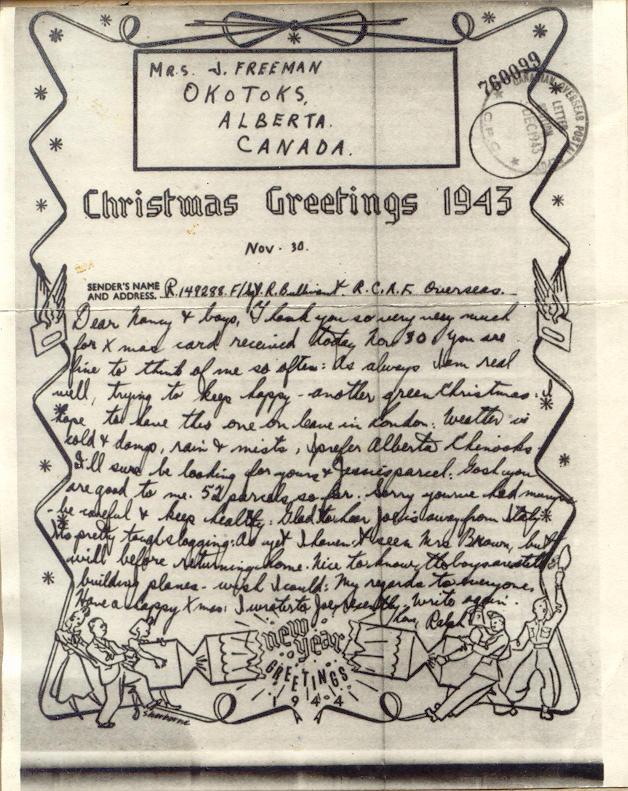 MRS. J. FREEMAN
OKOTOKS,
ALBERTA.
CANADA.
760099
CANADIAN OVERSEAS POSTAL
LETTER
DEC 1943
C.P.C.
Christmas Greetings 1943
Nov. 30.
SENDER'S NAME
AND ADDRESS. R.149288. R. Bullivant. R.C.A.F. Overseas.
Dear Nancy & boys, Thank you so very very much
for Xmas card received today Nov 30 You are
fine to think of me so often: As always I am real
well, trying to keep happy - another green Christmas: I
hope to have this one on leave in London: Weather is
cold & damp, rain & mists, I prefer Alberta Chinooks
I'll sure be looking for yours & Jessie's parcel: Gosh you
are good to me. 52 parcels so far. Sorry you've had mumps
- be careful & keep healthy: Glad to hear Joe is away from Italy
It's pretty tough slogging: As yet I haven't seen Mrs Brown, but
will before returning home. Nice to know the boys are still
building planes - wish I could: My regards to everyone,
Have a happy Xmas: I wrote to Joe recently - Write again.
Ralph
new
year
GREETINGS
1944